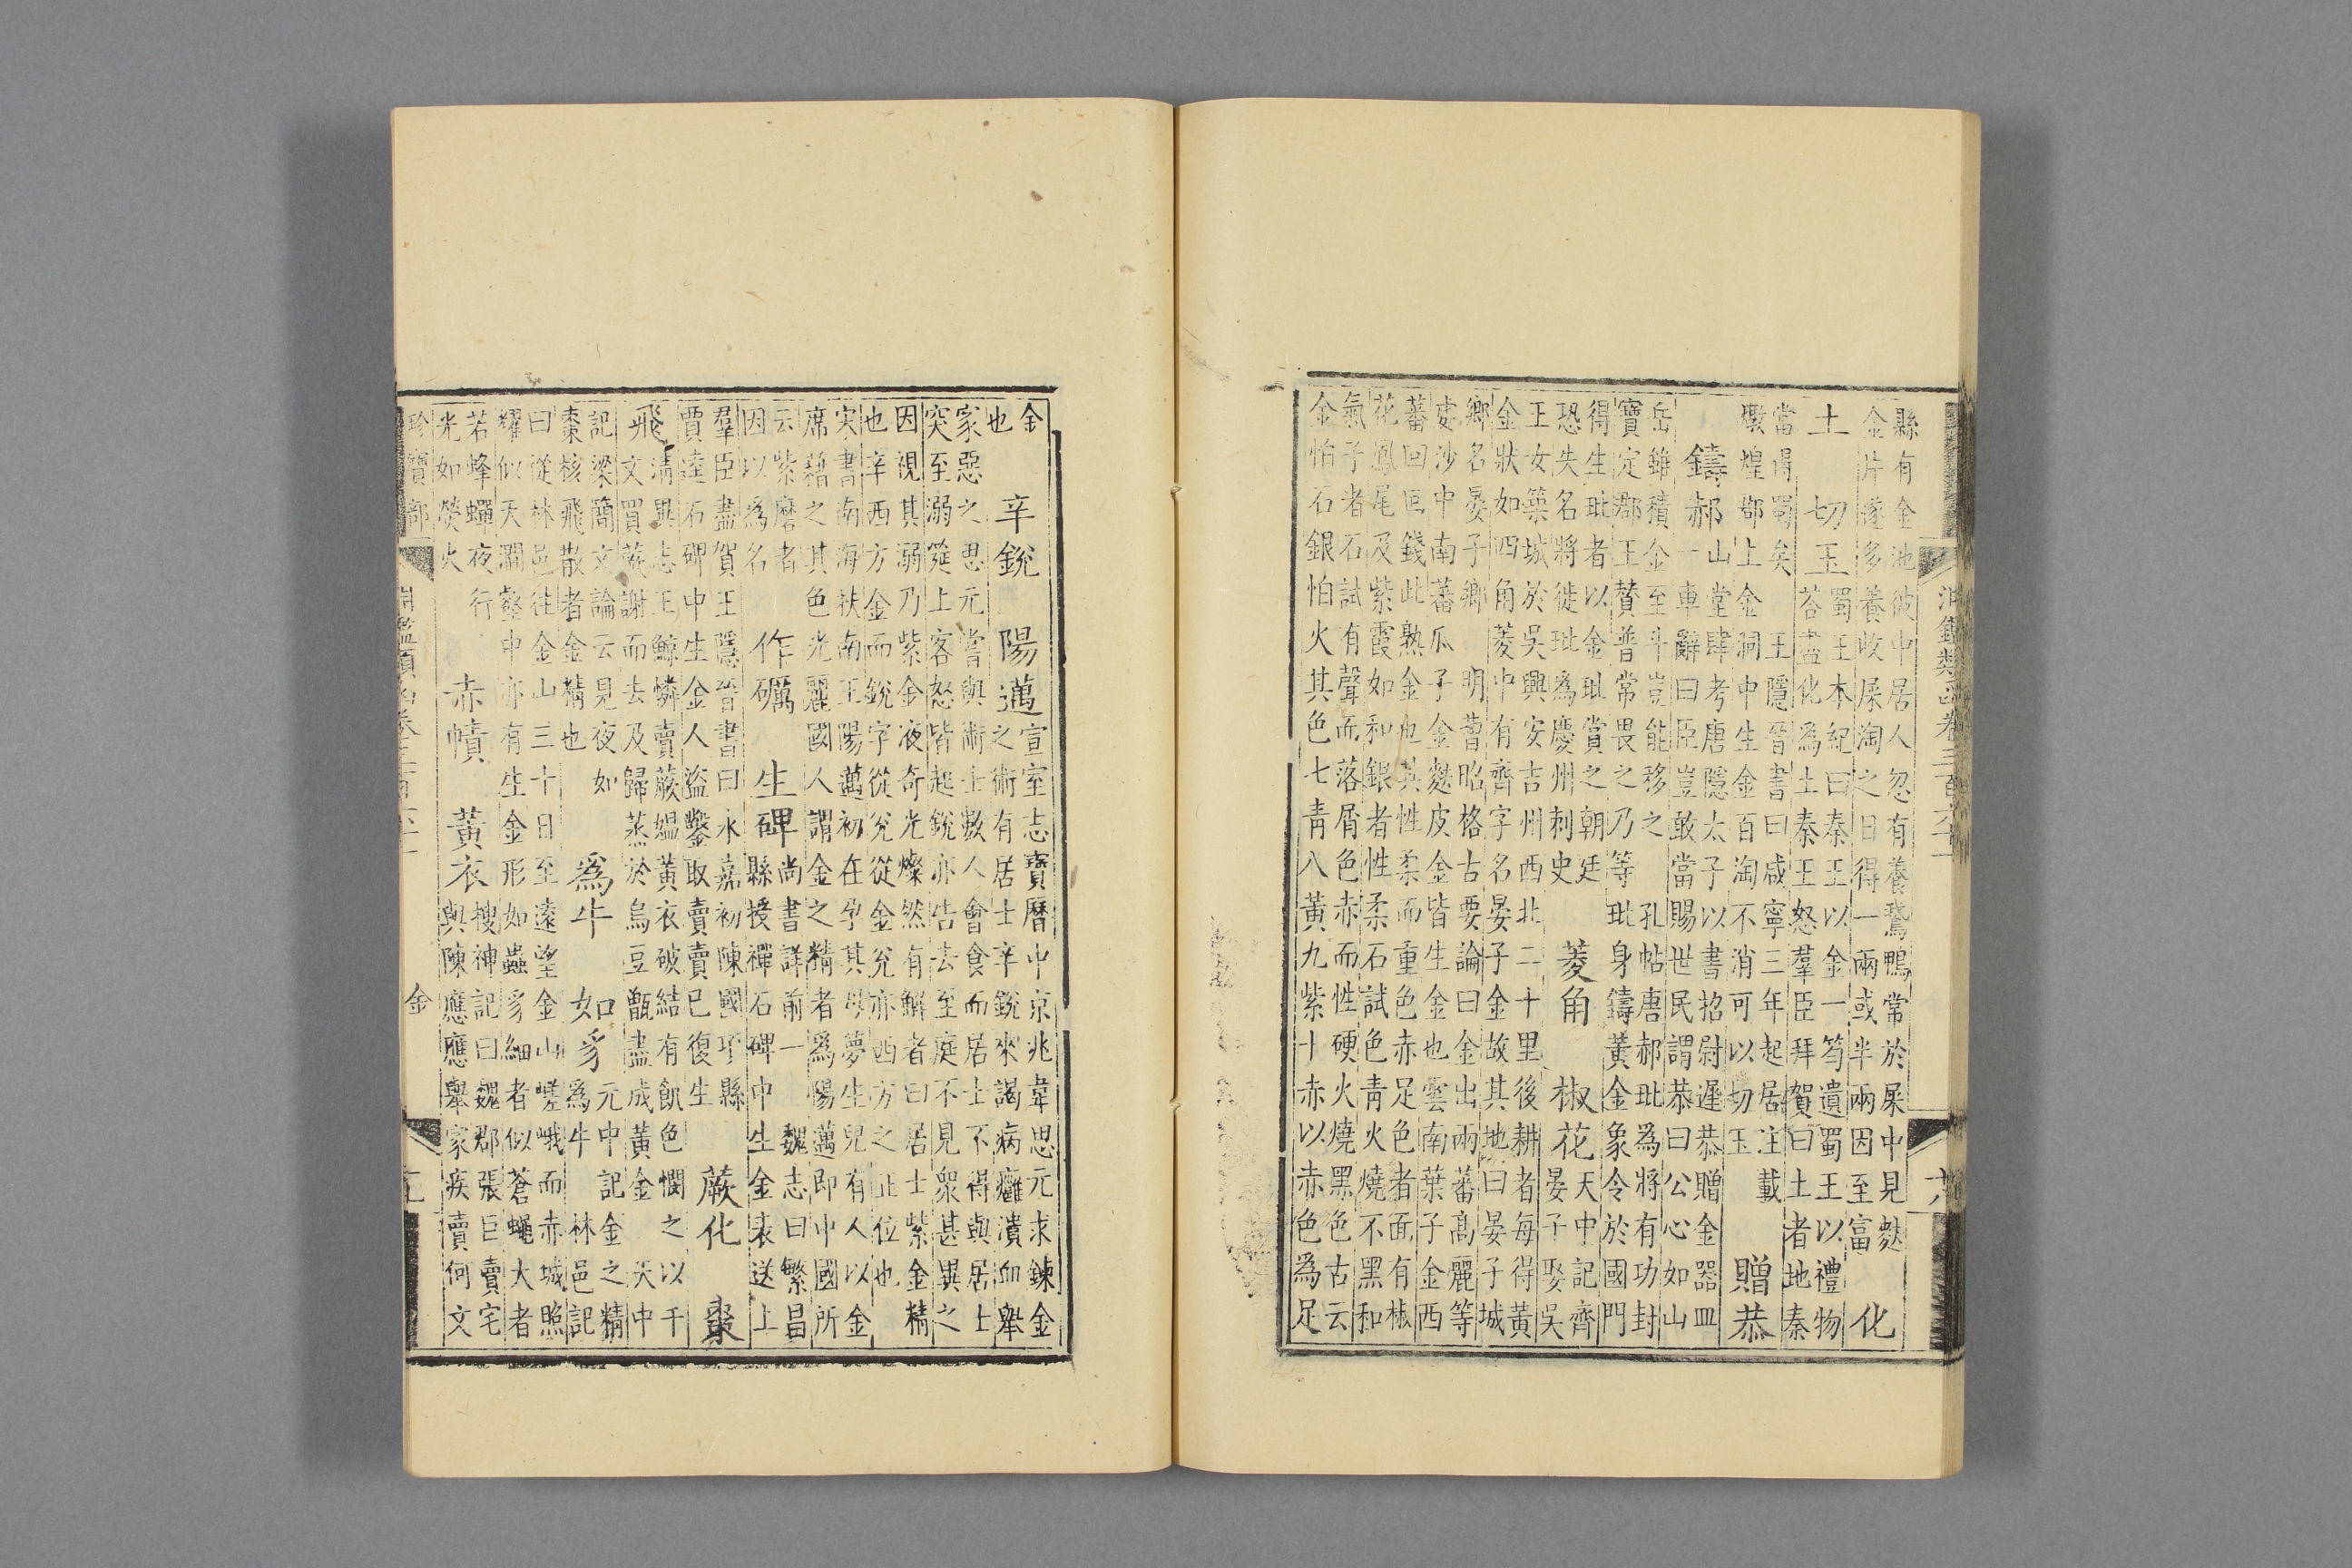 淵鑑類函卷三百六十一
縣有金池彼中居人忽有養鵞鴨常於屎中見麩
金片遂多養收屎淘之日得一兩或半兩因至富
化
土 切玉
蜀王本紀曰秦王以金一笱遺蜀王以禮物
荅盡化爲土秦王怒羣臣拜賀曰土者地秦
當得蜀矣 王隱晉書曰咸寧三年起居注載
燉煌郡上金洞中生金百淘不消可以切玉
贈恭
鑄郝
山堂肆考唐隱太子以書招尉遲恭贈金器皿
一車辭曰臣豈敢當賜世民謂恭曰公心如山
岳雖積金至斗豈能移之 孔帖唐郝玭爲將有功封
寶定郡王贊普常畏之乃等玭身鑄黃金象令於國門
得生玭者以金玭賞之朝廷
恐失名將徙玭爲慶州刺史
菱角 椒花
天中記齊
晏子娶吳
王女築城於吳興安吉州西北二十里後耕者每得黃
金狀如四角菱中有齊字名晏子金故其地曰晏子城
鄉名晏子鄉 明曹昭格古要論曰金出兩蕃髙麗等
婁沙中南蕃瓜子金麩皮金皆生金也雲南葉子金西
蕃回回錢此熟金也其性柔而重色赤足色者面有椒
花鳳尾及紫霞如和銀者性柔石試色青火燒不黑和
氣子者石試有聲而落屑色赤而性硬火燒黑色古云
金怕石銀怕火其色七青八黃九紫十赤以赤色爲足
金
也
辛銳 陽邁
宣室志寶曆中京兆韋思元求鍊金
之術有居士辛銳來謁病癰潰血舉
家惡之思元嘗與術士數人會食而居士不得與居士
突至溺筵上客怒皆起銳亦告去至庭不見衆甚異之
因視其溺乃紫金夜奇光燦然有解者曰居士紫金精
也辛西方金而銳字從兌從金兌亦西方之正位也
宋書南海扶南王陽邁初在孕其母夢生兒有人以金
席藉之其色光麗國人謂金之精者爲陽邁即中國所
云紫磨者
因以爲名
作礪 生碑
尚書詳前一 魏志曰繁昌
縣授禪石碑中生金表送上
羣臣盡賀王隱晉書曰永嘉初陳國項縣
賈逵石碑中生金人盜鑿取賣賣已復生
蕨化 棗
飛
清異志王鯨憐賣蕨媼黃衣破結有飢色憫之以千
文買蕨謝而去及歸蒸於烏豆甑盡成黃金 天中
記梁簡文論云見夜如
棗核飛散者金精也
爲牛 如豸
元中記金之精
爲牛 林邑記
曰從林邑往金山三十日至遠望金山嵯峨而赤城照
耀似天澗壑中亦有生金形如蟲豸細者似蒼蠅大者
若蜂蟬夜行
光如熒火
赤幘 黃衣
搜神記曰魏郡張巨賣宅
與陳應應舉家疾賣何文
珍寶部 金